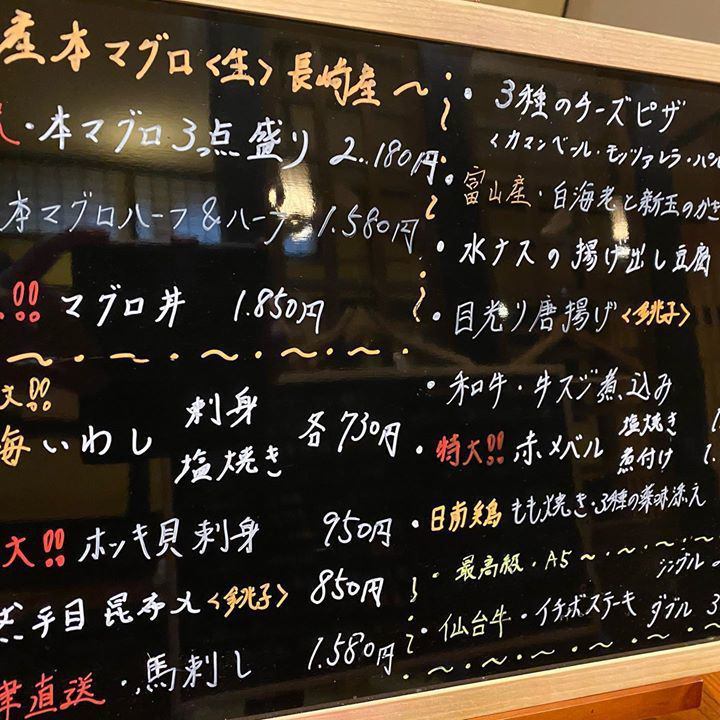 産本マグロ<生>長崎産〜
・本マグロ3点盛り 2.180円
本マグロハーフ&ハーフ 1.580円
!! マグロ丼 1.850円
〜・〜・〜・〜・〜
大!!
海いわし 刺身 塩焼き 各730円
大!! ホッキ貝刺身 950円
平目昆布〆<銚子> 850円
津直送・馬刺し 1.580円
・3種のチーズピザ
<カマンベール・モッツァレラ・パル
・富山産・白海老と新玉のかき
・水ナスの揚げ出し豆腐
・目光り唐揚げ<銚子>
・和牛・牛スジ煮込み
・特大!! 赤メバル 塩焼き 1.
煮付け 1.
・日南鶏もも焼き・3種の薬味添え
・最高級・A5〜・〜・〜・〜
シングル
・仙台牛・イチボステーキ ダブル 3